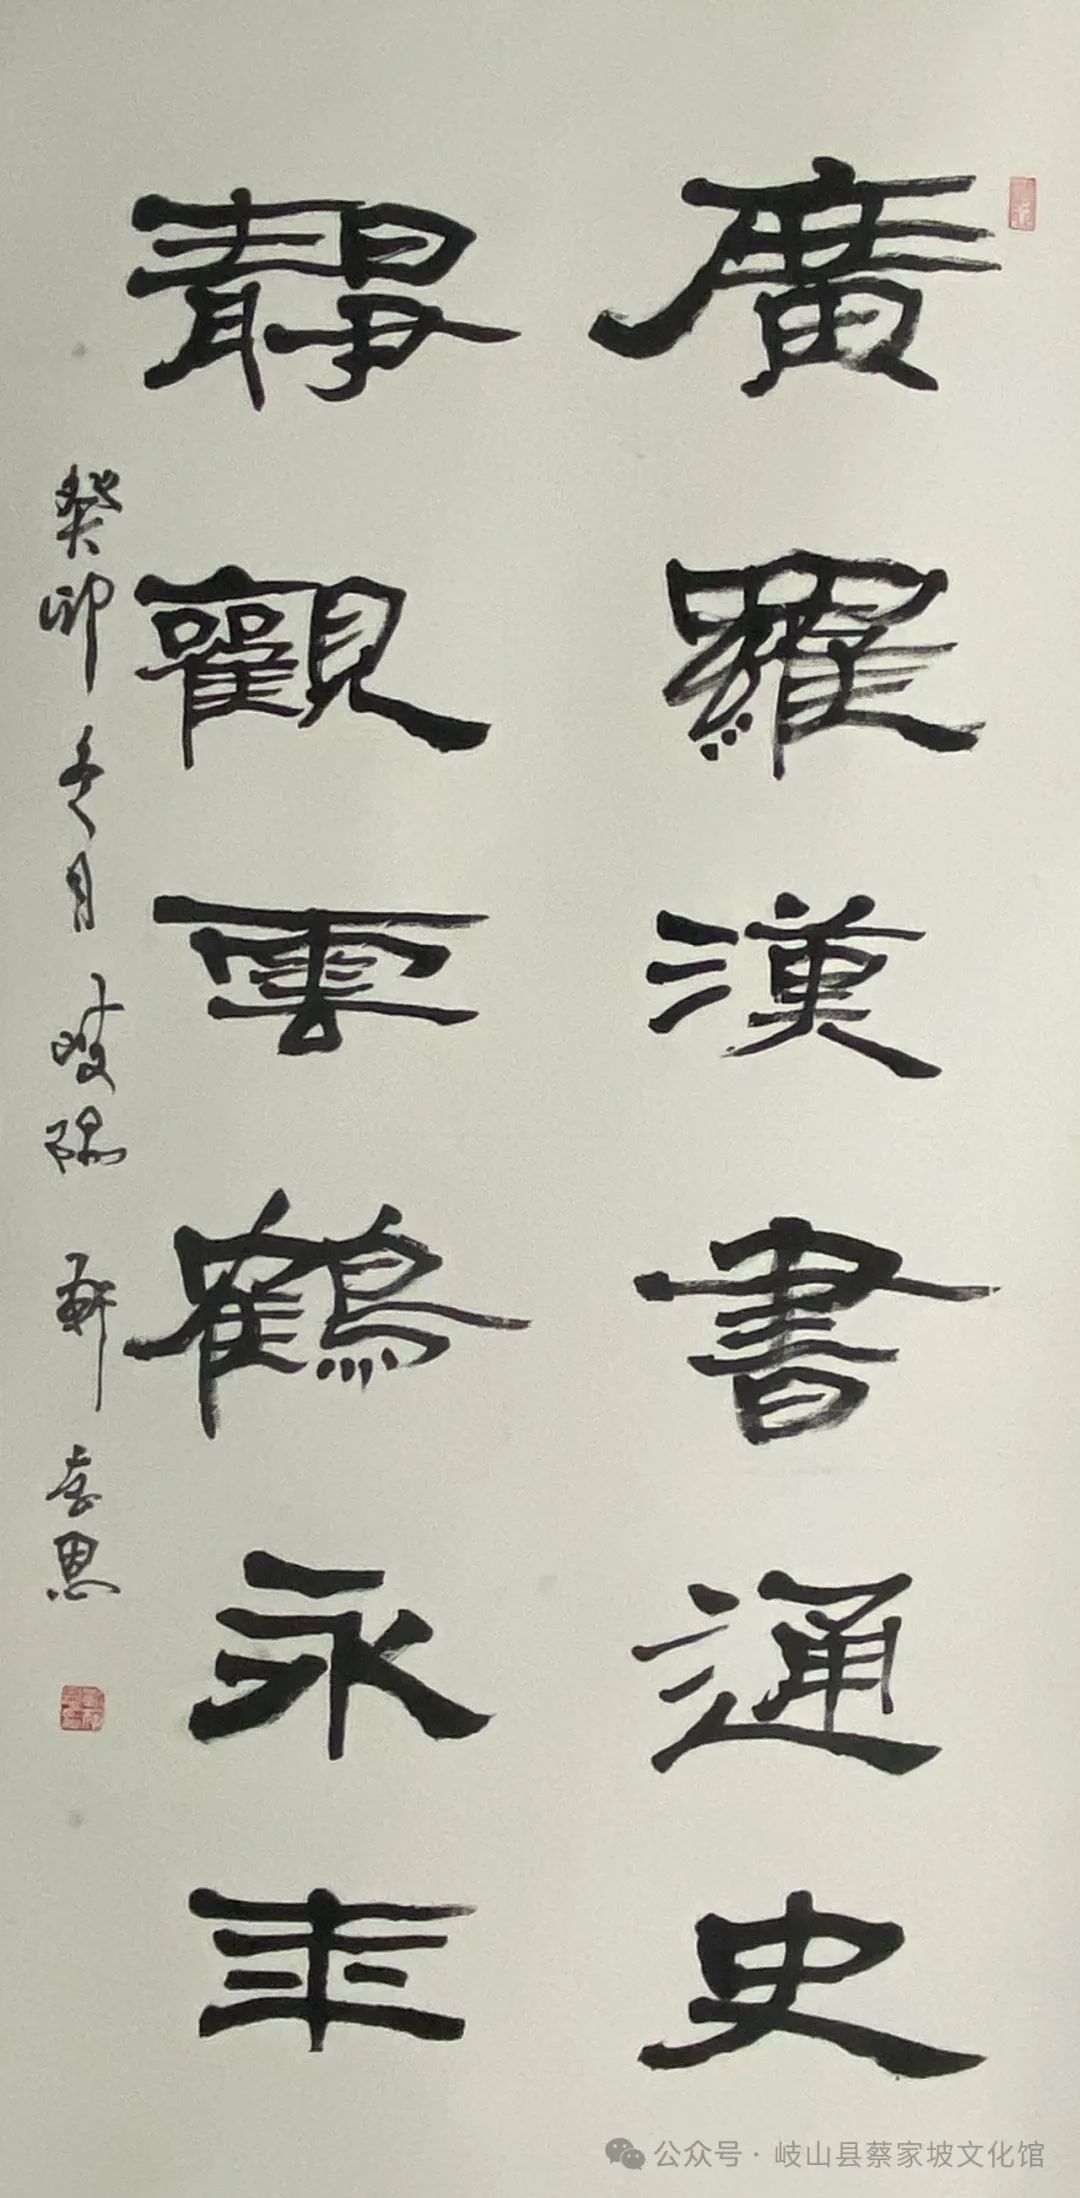 廣羅漢書通史
靜觀雲鶴永年
癸卯冬月 陂陽軒 喜恩
公众号·岐山县蔡家坡文化馆